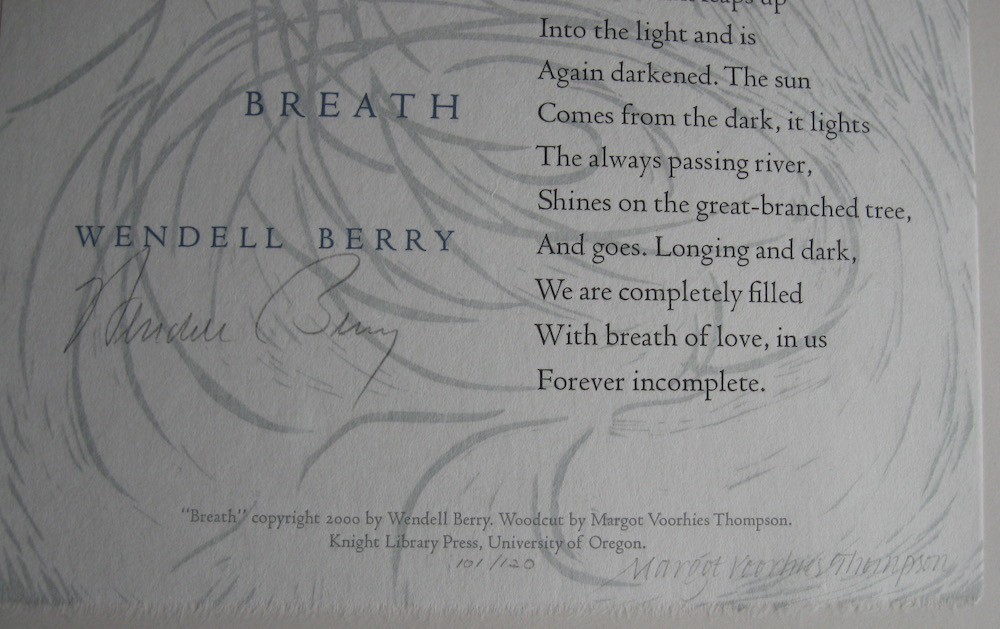 up
Into the light and is
Again darkened. The sun
Comes from the dark, it lights
The always passing river,
Shines on the great-branched tree,
And goes. Longing and dark,
We are completely filled
With breath of love, in us
Forever incomplete.
BREATH
WENDELL BERRY
Wendell Berry
"Breath" copyright 2000 by Wendell Berry. Woodcut by Margot Voorhies Thompson.
Knight Library Press, University of Oregon.
101/120
Margot Voorhies Thompson